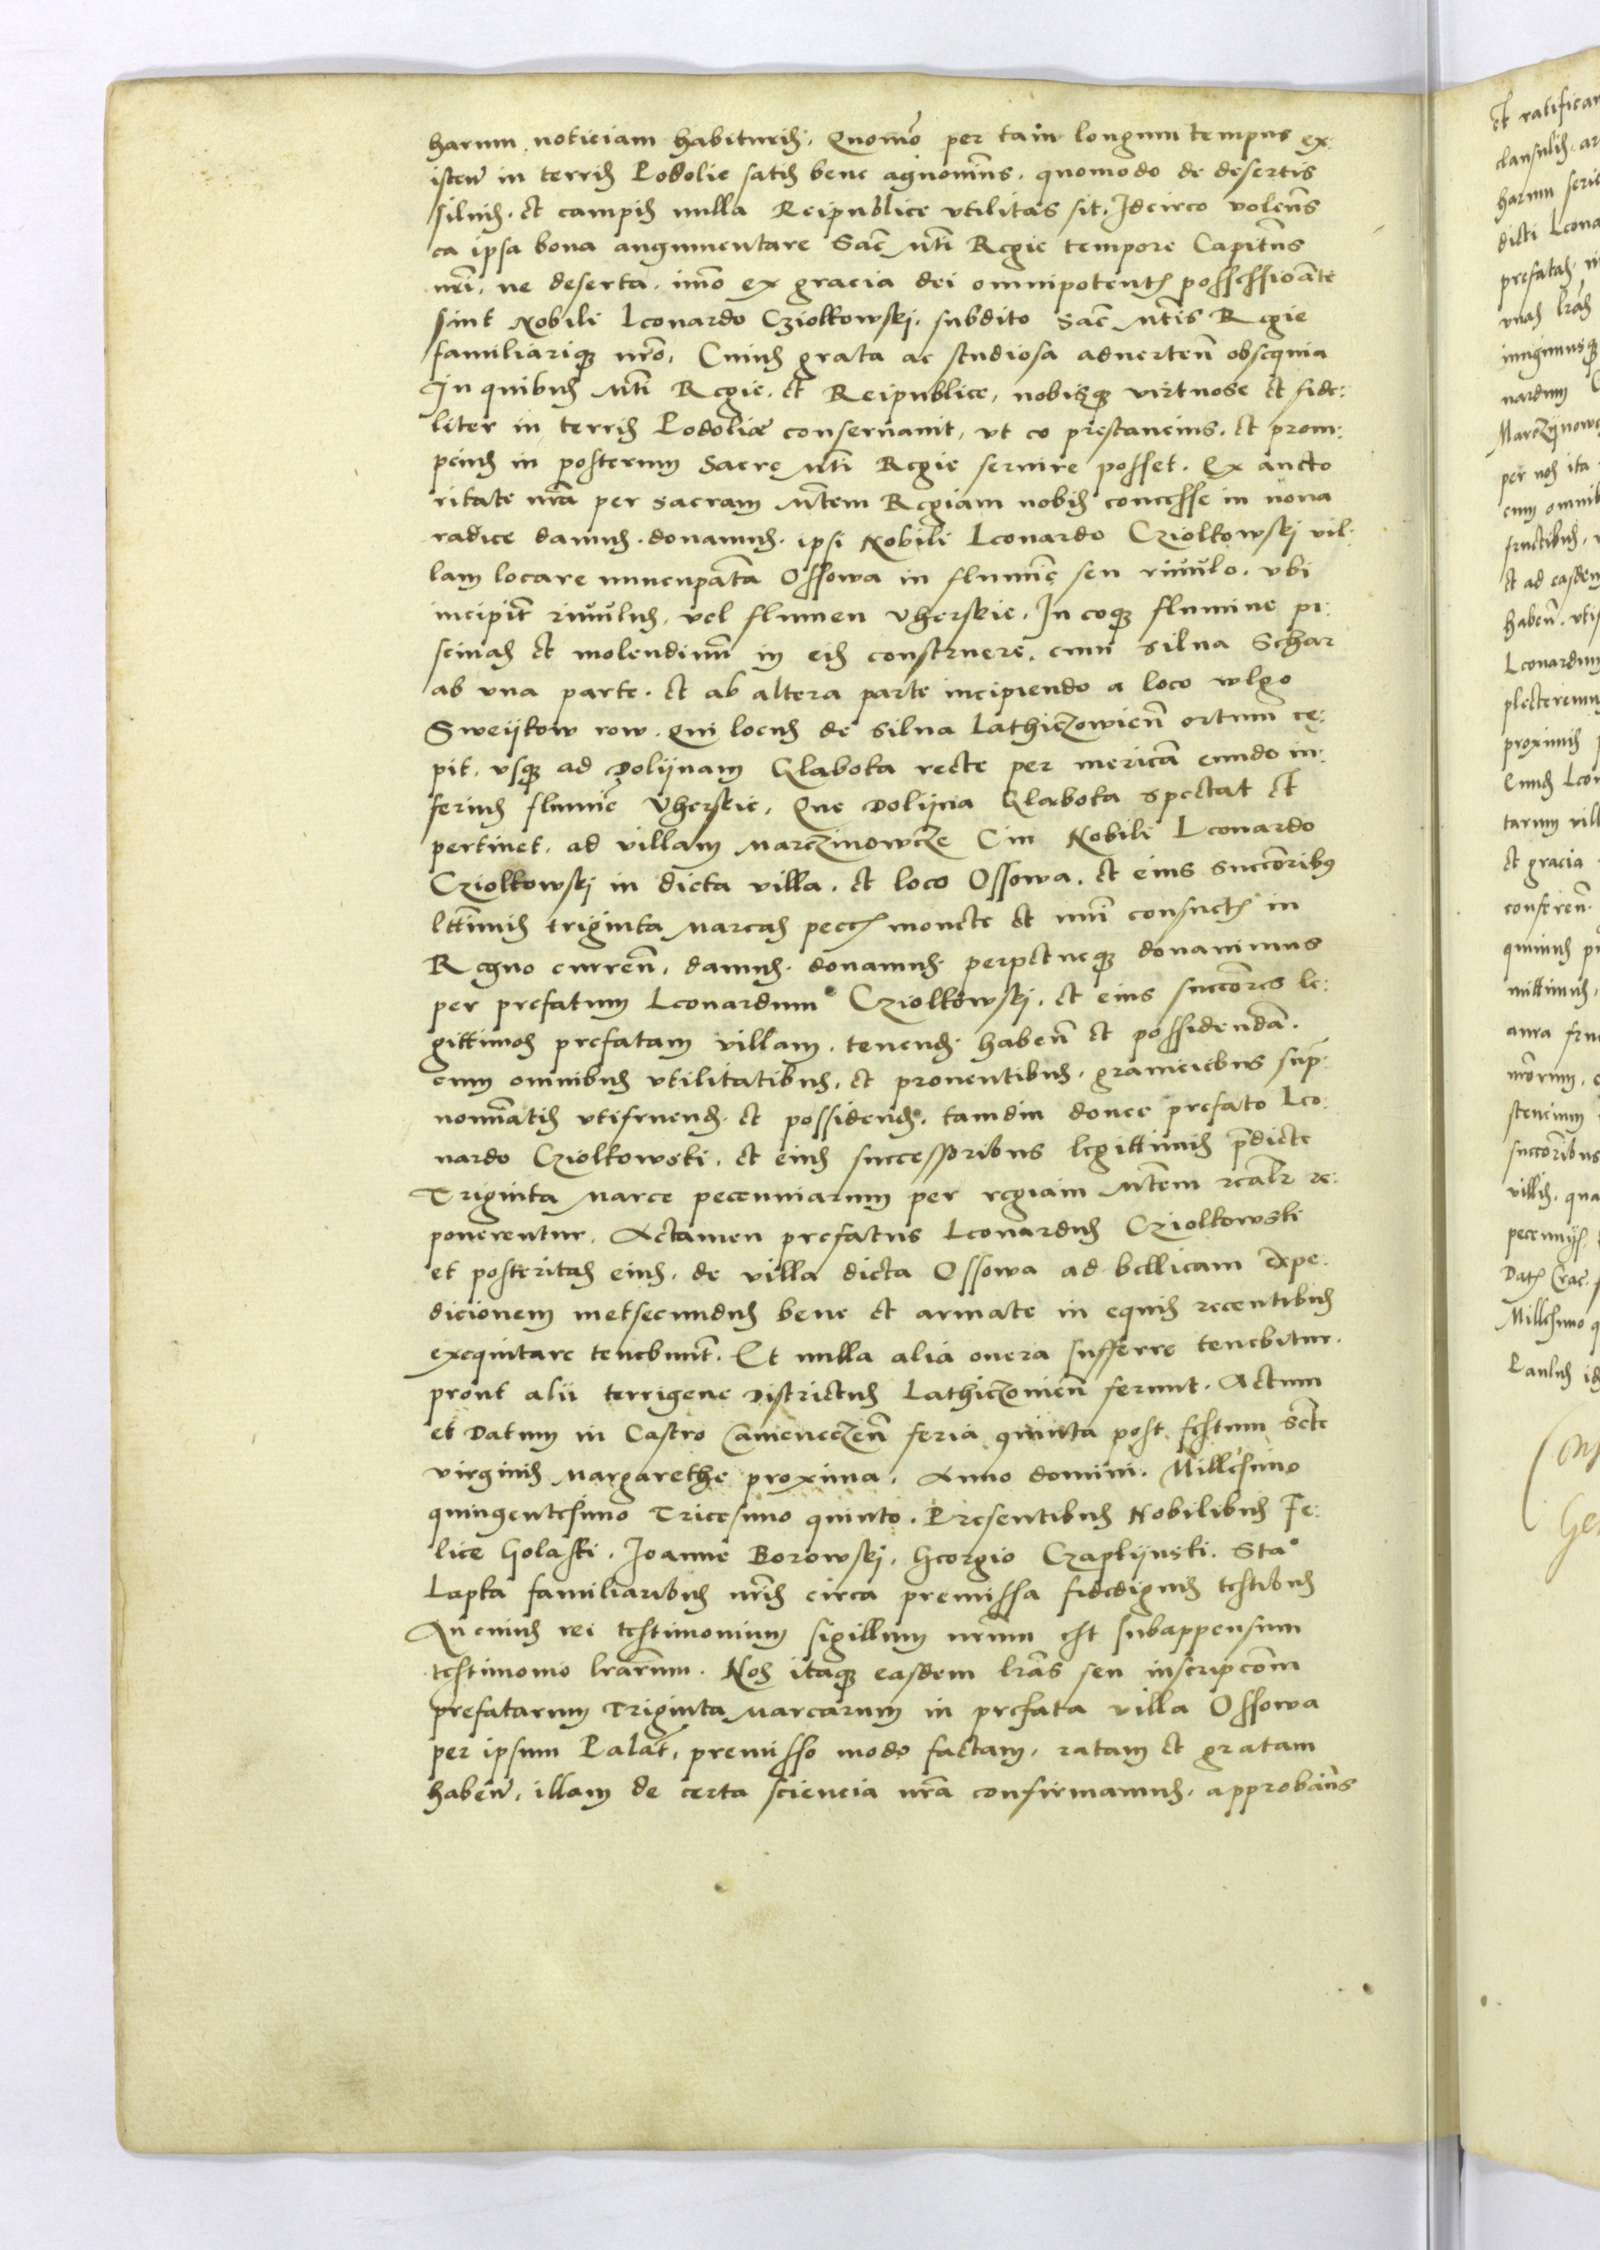 harum noticiam habituris. Quomo per tam longum tempus ex:
isten in terris Podolie satis bene agnouims. quomodo de desertis
siluis. et campis nulla Reipublice vtilitas sit. Idcirco volens
ea ipsa bona augumentare Sac Mti Regie tempore Capitns
nri. ne deserta. imo ex gracia dei omnipotentis possessioate
sint Nobili Leonardo Cziolkowskj. subdito Sac Mtis Regie
familiariq nro. Cuius grata ac studiosa aduerten obsequia
In quibus Mti Regie. et Reipublice, nobisq virtuose et fide:
liter in terris Podoliae conseruauit, vt eo prestancius. et prom:
pcius in posterum Sacre Mti Regie seruire posset. Ex aucto
ritate nra per sacram Mtem Regiam nobis concesse in noua
radice damus. donamus. ipsi Nobili Leonardo Cziolkowskj vil:
lam locare nuncupatam Ossowa in flumie seu riuulo. vbi
incipit riuulus, vel flumen Vherskie. In eoq flumine pi:
scinas et molendinu in eis construere. cum silua Schar
ab vna parte. et ab altera parte incipiendo a loco wlgo
Sweijkow row. qui locus de silua Lathiczowien ortum ce:
pit. vsq ad Dolijnam Glaboka recte per mericam eundo in:
ferius flumie Vherskie, Que Dolijna Glaboka spectat et
pertinet. ad villam Marczinowcze Cui Nobili Leonardo
Cziolkowskj in dicta villa. et loco Ossowa. et eius succoribus
lttimis triginta Marcas pecc monete et nui consuete in
Regno curren, damus. donamus. perpetueq donauimus
per prefatum Leonardum Cziolkowskj. et eius succores le:
gittimos prefatam villam. tenend. haben et possidendam.
cum omnibus vtilitatibus. et prouentibus. graniciebus sup:
nominatis vtifruend. et possidend. tamdiu donec prefato Leo:
nardo Cziolkowski. et eius successoribus legittimis predicte
Triginta Marce pecuniarum per regiam Mtem realr re:
ponerentur. Actamen prefatus Leonardus Cziolkowski
et posteritas eius. de villa dicta Ossowa ad bellicam expe:
dicionem metsecundus bene et armate in equis recentibus
exequitare tenebunt. Et nulla alia onera sufferre tenebitur.
prout alii terrigene Districtus Lathiczouien ferunt. Actum
et Datum in Castro Cameneczen feria quinta post festum Scte
virginis Margarethe proxima. Anno domini. Millesimo
quingentesimo Tricesimo quinto. Presentibus Nobilibus Fe:
lice Golaski. Joanne Borowskj. Georgio Czaplijnski. Sta
Lapka familiaribus nris circa premissa fidedignis testibus
In cuius rei testimonium sigillum nrum est subappensum
testimonio lrarum. Nos itaq easdem lras seu inscripcom
prefatarum Triginta Marcarum in prefata villa Ossowa
per ipsum Palat, premisso modo factam. ratam et gratam
haben. illam de certa sciencia nra confirmamus. approbams